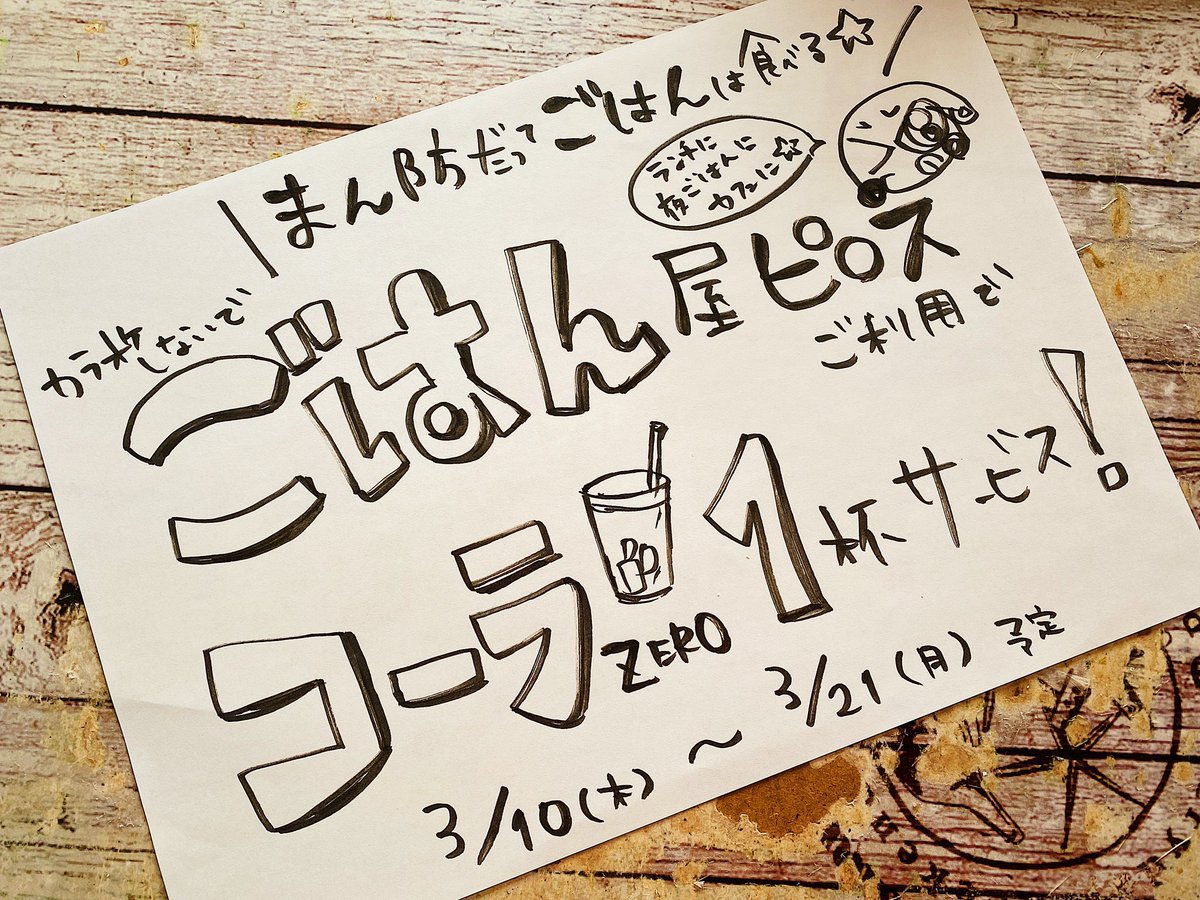 \ まん防だってごはんは食べる☆ /
ランチに
夜ごはんに
カフェに☆
カラ投しないで
ごはん屋ピロス
ご利用で
コーラZERO 1杯サービス!
3/10(木) ～ 3/21(月) 予定